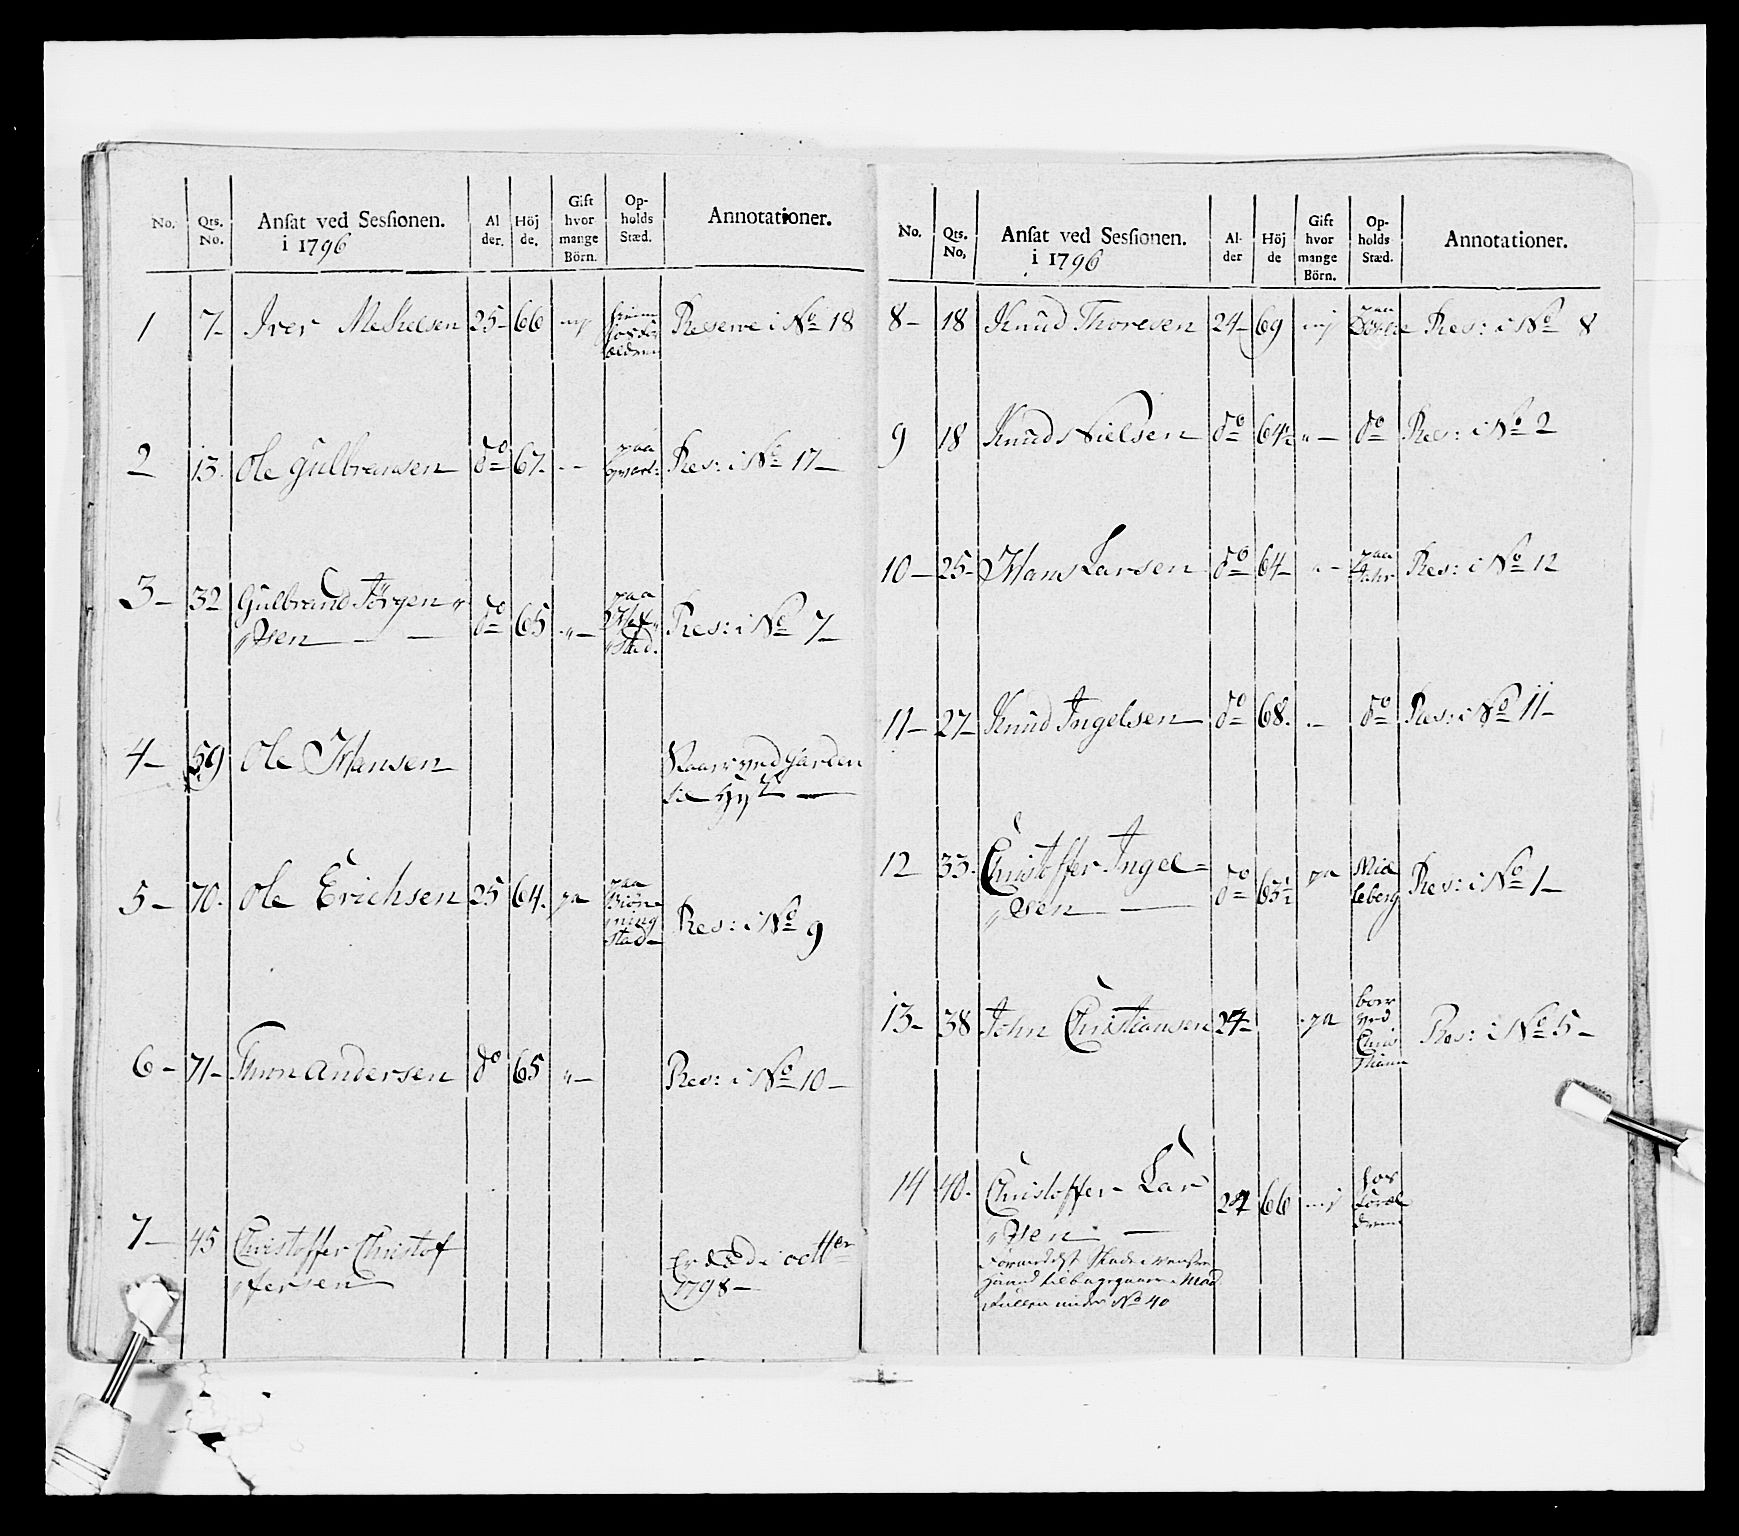 No. Qts. No. Ansat ved Sessionen. i 1796 Al der. Höj de. Gift hvor mange Börn. Op- holds Stæd. Annotationer.
1 7- Iver Mekelsen 25- 66 Reserve i No 18
2 13. Ole Gulbransen do 67. paa Res: i No 17-
3- 32 Gulbrand Jörgen
sen do 65 „- paa Res: i No 7-
4- 59 Ole Hansen
5- 70. Ole Erichsen 25 64. ja paa Res: i No 9
6- 71- Thron Andersen do 65 „- Res: i No 10-
7- 45 Christoffer Christof Er död i octbr
fersen 1798-
No. Qts. No, Ansat ved Sessionen. i 1796 Al- der Höj de Gift hvor mange Börn. Op- holds Stæd. Annotationer.
8- 18 Knud Thoresen 24- 69 nej paa Res: i No 8
9 18 Knud Nielsen do 64½ „- do Res: i No 2
10- 25- Hans Larsen do 64- „- paa Res: i No 12
11- 27- Knud Ingelsen do 68. „- do Res: i No 11-
12 33. Christoffer Ingel=
sen do 63½ ja Mid
leberg Res: i No 1-
13- 38 John Christiansen 24- ja boer
ved
Chris
thiania Res: i No 5-
14 40. Christoffer Lar
sen 24 66 nej hos
Foræl
drene
under No 40